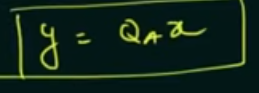 y = Q_A x